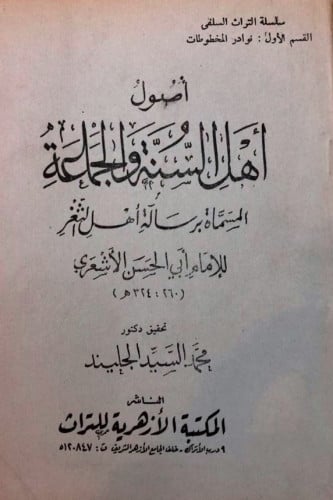 سلسلة التراث السلفى
القسم الأول : نوادر المخطوطات
أصول
أهل السنة والجماعة
المسماة برسالة أهل الثغر
للإمام أبي الحسن الأشعري
(٢٦٠ : ٣٢٤ هـ)
تحقيق دكتور
محمد السيد الجليند
الناشر
المكتبة الأزهرية للتراث
٩ درب الأتراك - خلف الجامع الأزهر الشريف ت : ٥١٢٠٨٤٧